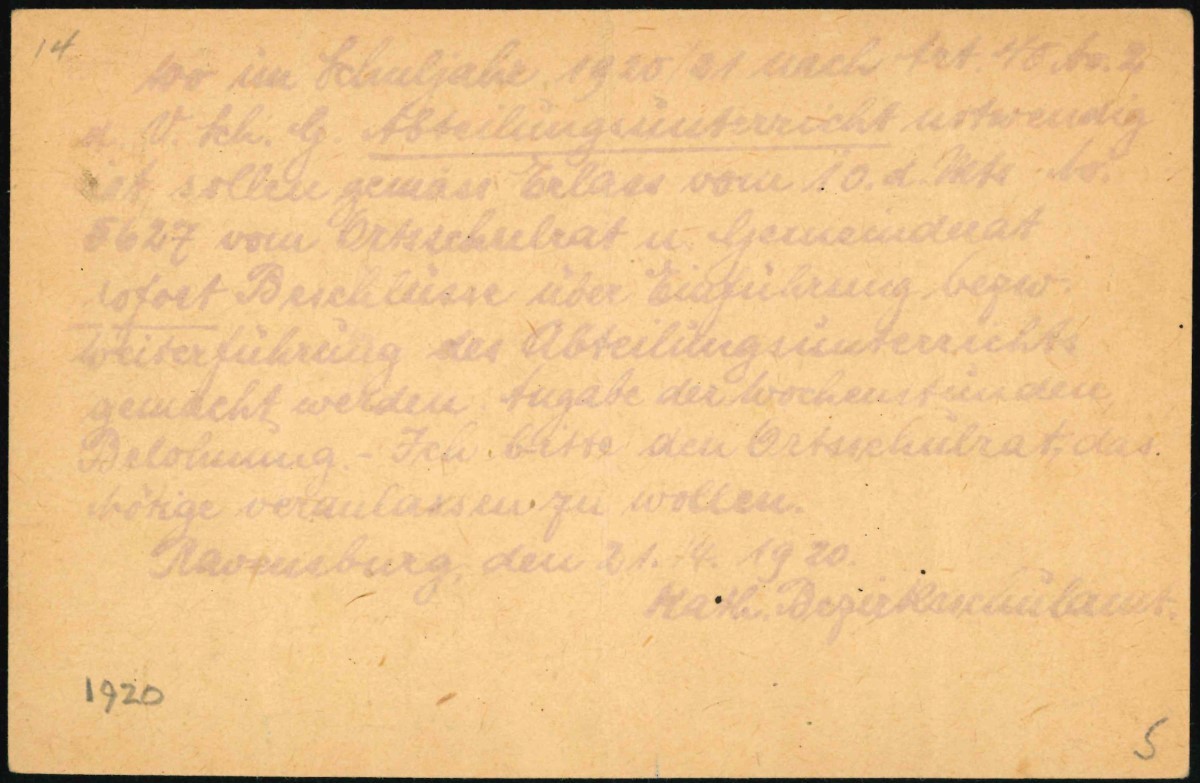 14
Wo im Schuljahr 1920/21 nach Art. 45 No. 2
d. V. Sch. G. Abteilungsunterricht notwendig
ist, sollen gemäss Erlass vom 10. d. Mts No.
5627 vom Ortsschulrat u. Gemeinderat
sofort Beschlüsse über Einführung bezw.
Weiterführung des Abteilungsunterrichts
gemacht werden. Angabe der Wochenstunden,
Belohnung. - Ich bitte den Ortsschulrat, das
Nötige veranlassen zu wollen.
Ravensburg, den 21. 4. 1920.
Kath. Bezirksschulamt.
1920
5